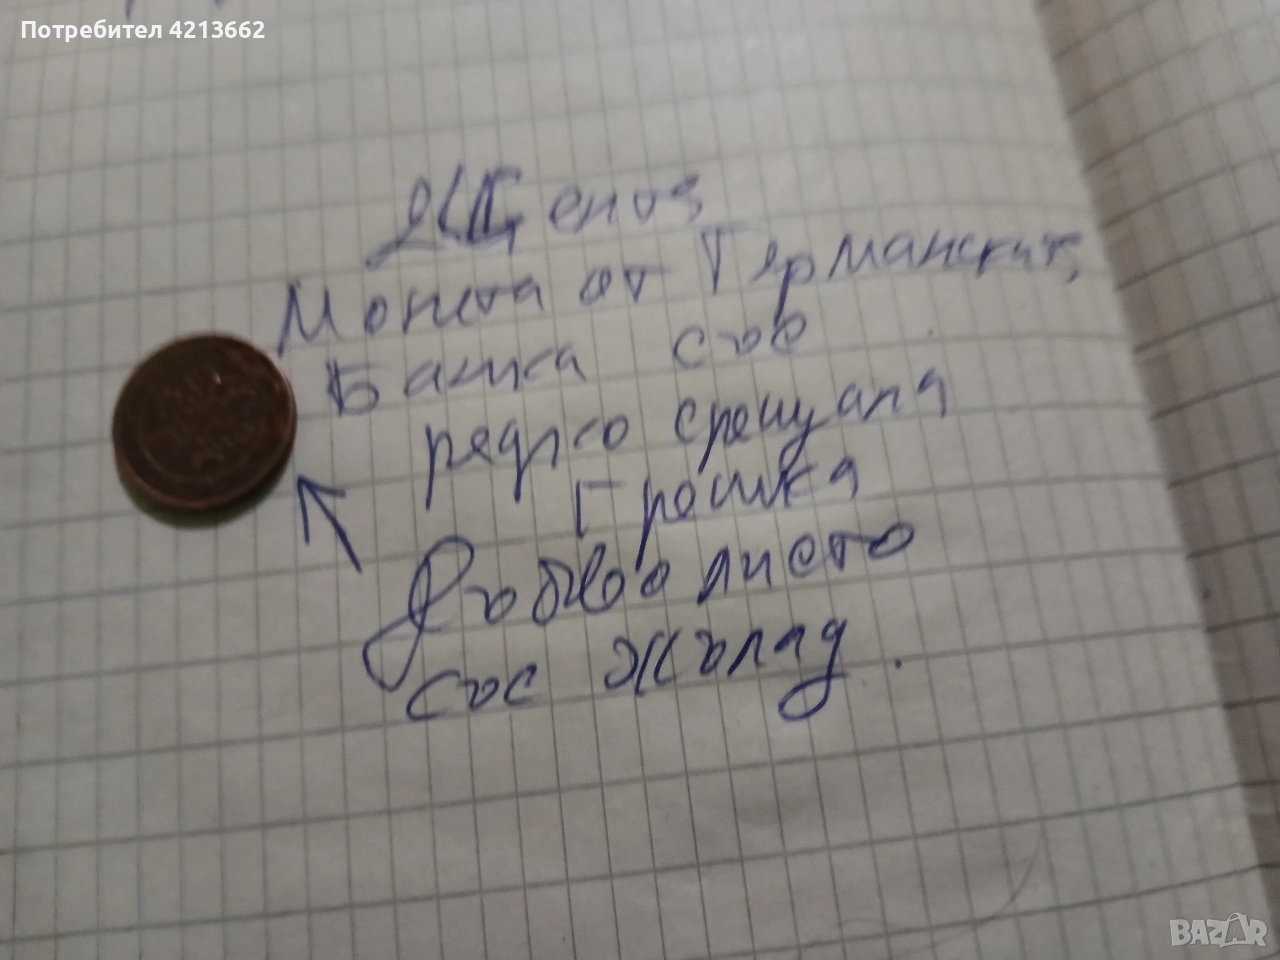 Потребител 4213662
Монета от Германскит
Банка със
рядко срещана
Грешка
Дъбово листо
със жълъд.
BAZAR